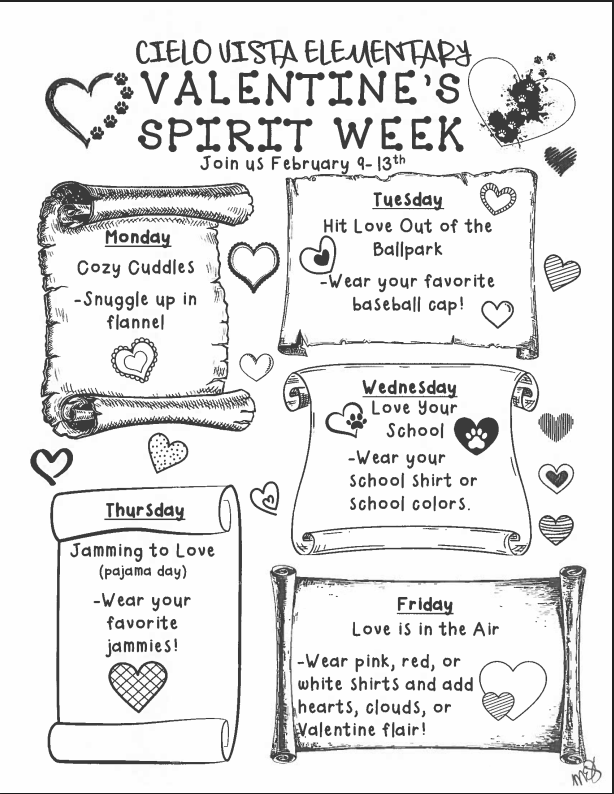 CIELO VISTA ELEMENTARY
VALENTINE'S
SPIRIT WEEK
Join us February 9-13th
Monday
Cozy Cuddles
-Snuggle up in
flannel
Tuesday
Hit Love Out of the
Ballpark
-Wear your favorite
baseball cap!
Wednesday
Love Your
School
-Wear your
school shirt or
school colors.
Thursday
Jamming to Love
(pajama day)
-Wear your
favorite
jammies!
Friday
Love is in the Air
-Wear pink, red, or
white shirts and add
hearts, clouds, or
Valentine flair!